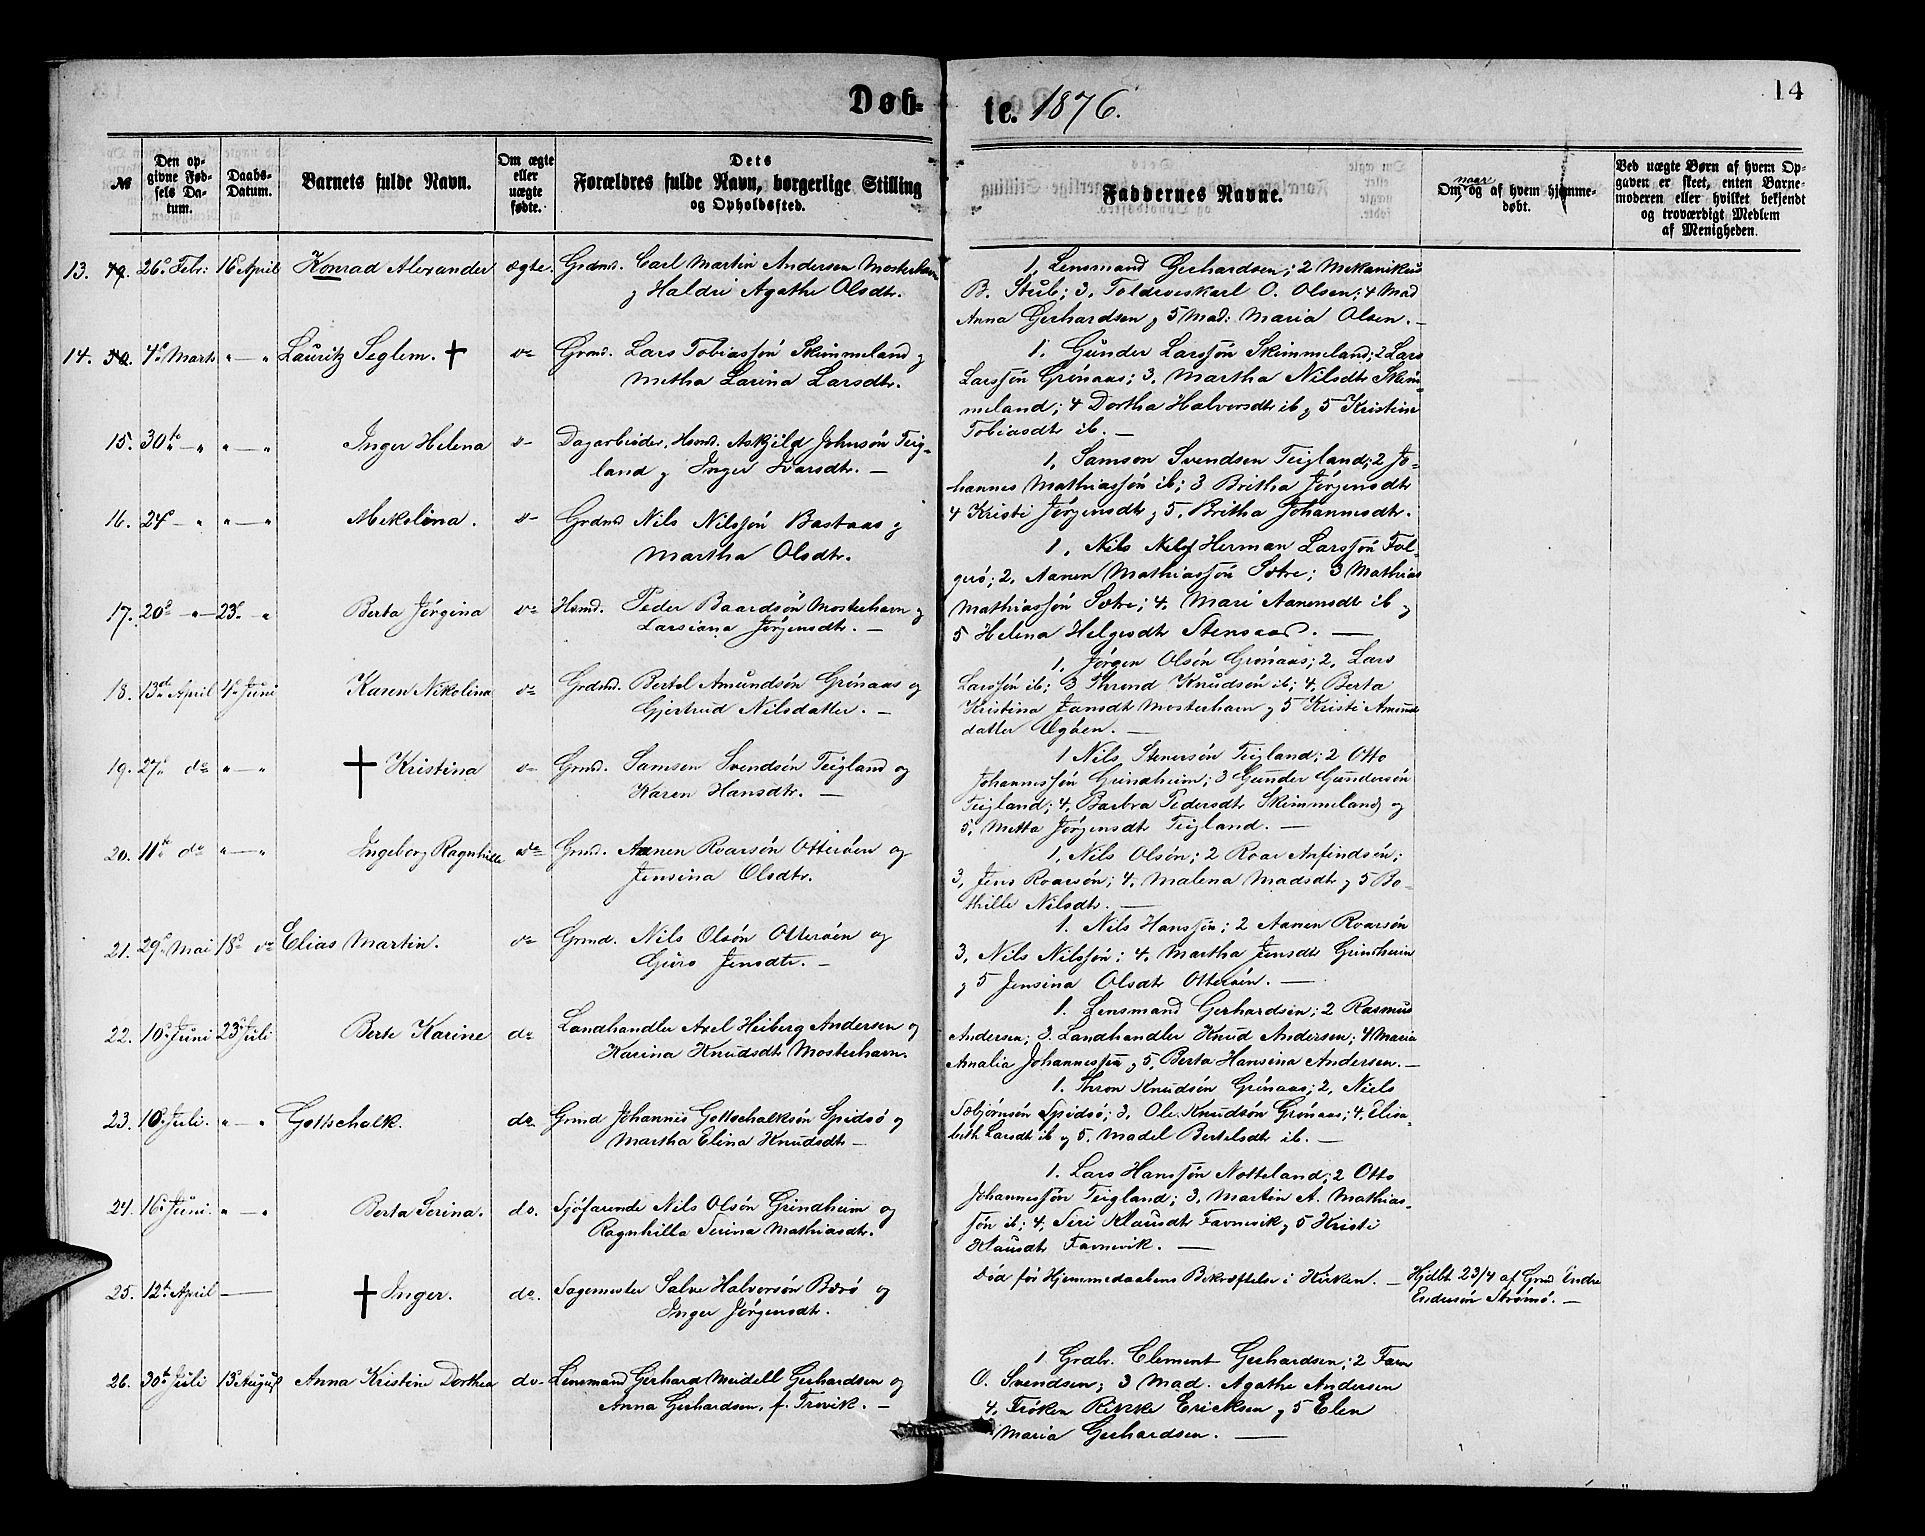 Døb-
te. 1876.
14
№
Den opgivne Fødsels Datum.
Daabs-Datum.
Barnets fulde Navn.
Om ægte eller uægte fødte.
Dets Forældres fulde Navn, borgerlige Stilling og Opholdssted.
Faddernes Navne.
Om naar og af hvem hjemmedøbt.
Ved uægte Børn af hvem Opgaven er skeet, enten Barnemoderen eller hvilket bekjendt og troværdigt Medlem af Menigheden.
13. 26. Febr: 16 April Konrad Alexander ægte. Grdmd. Carl Martin Andersen Mosterhavn
og Haldri Agathe Olsdtr.
1, Lensmand Gerhardsen; 2 Mekanikus
B. Stub; 3, O. Olsen; 4 Mad
Anna Gerhardsen og 5 Mad: Maria Olsen. —
14. 4d Marts " — " Lauritz Seglem. † do Grmd. Lars Tobiassøn Skimmeland og
Metha Larina Larsdtr.
1, Gunder Larssøn Skimmeland; 2 Lars
Larssøn Grønaas; 3, Martha Nilsdtr Skim-
meland; 4 Dortha Halvorsdtr ib og 5 Kristine
Tobiasdtr ib. —
15. 30te — " " — " Inger Helena Dagarbeider, Hsmd. Askjild Johnsøn Teig-
land og Inger Ivarsdtr. —
1, Samson Svendsen Teigland; 2 Jo-
hannes Mathiassøn ib; 3 Britha Jørgensdtr
4 Kristi Jørgensdtr og 5, Britha Johannesdtr.
16. 24d — " " — " Mekolina. Grdmd Nils Nilssøn Bastaas og
Martha Olsdtr.
1, Nils Herman Larssøn Fol-
gerø; 2, Aanen Mathiassøn Sætre; 3 Mathias
Mathiassøn Sætre; 4, Mari Aanensdtr ib og
5 Helena Helgesdtr Stensaas. —
17. 20d — " 23d " Berta Jørgina do Hsmd. Peder Baardsøn Mosterhavn og
Larsiana Jørgensdtr. —
1, Jørgen Olsøn Grønaas; 2, Lars
Larssøn ib; 3 Thrond Knudsøn ib; 4, Berta
Kristina Jansdtr Mosterhavn og 5 Kristi Amunds
datter Øgøen. —
18. 13de April 4d Juni Karen Nikolina do Grdmd. Bertel Amundsøn Grønaas og
Gjertrud Nilsdatter. —
1 Nils Stenersøn Teigland; 2 Otto
Johannessøn Grindheim; 3 Gunder Gundersøn
Teigland; 4, Barbra Pedersdtr Skimmeland og
5, Metta Jørgensdtr Teigland. —
19. 27d do " — " † Kristina Grmd. Samson Svendsøn Teigland og
Karen Hansdtr. —
20. 11te do " — " Ingeborg Ragnhilla do Grmd. Aanen Roarsøn Otterøen og
Jensina Olsdtr.
1, Nils Olsøn; 2 Roar Arfindsøn;
3, Jens Roarsøn; 4, Malena Madsdtr og 5 Bo-
thille Nilsdtr. —
21. 29d Mai 18d do Elias Martin. do Grmd. Nils Olsøn Otterøen og
Guro Jensdtr. —
1. Nils Hanssøn; 2 Aanen Roarsøn
3, Nils Nilssøn; 4, Martha Jensdtr Grindheim
og 5 Jensina Olsdtr Otterøen. —
22. 10d Juni 23d Juli Berte Karine do Landhandler Axel Heiberg Andersen og
Karina Knudsdtr Mosterhavn.
1. Lensmand Gerhardsen; 2 Rasmus
Andersen; 3. Landhandler Knud Andersen; 4 Maria
Amalia Johannessen og 5, Berta Hansina Andersen. —
23. Juli. " — " Gottschalk. do Grmd Johannes Gottschalksøn Spidsø og
Martha Elina Knudsdtr —
1. Thron Knudsøn Grønaas; 2, Niels
Sæbjørnsøn Spidsø; 3, Ole Knudsøn Grønaas; 4, Elisa-
beth Larsdtr ib og 5, Madel Bertelsdtr ib. —
24. 16d Juni. " — " Berta Serina. do. Sjøfarende Nils Olsøn Grindheim og
Ragnhilla Serina Mathiasdtr.
1. Lars Hanssøn Notteland; 2 Otto
Johannessøn Teigland; 3, Martin A. Mathias-
søn ib; 4, Seri Klausdtr Favnevik og 5 Kristi
Klausdtr Favnevik. —
25. 12te April — † Inger. do. Sagmester Salve Halvorsøn Børø og
Inger Jørgensdtr.
Død før Hjemmedaabens Bekræftelse i Kirken. —
Hjdbt 23/4 af Grmd Endre
Endresøn Strømø. —
26. 30te Juli 13 August Anna Kristine Dorthea do. Lensmand Gerhard Meidell Gerhardsen og
Anna Gerhardsen, f. Trovik. —
1 Grdbr. Clement Gerhardsen; 2 Farv
O. Svendsen; 3 Mad. Agathe Andersen
4, Frøken Rikke Ericksen og 5 Elen
Maria Gerhardsen. —